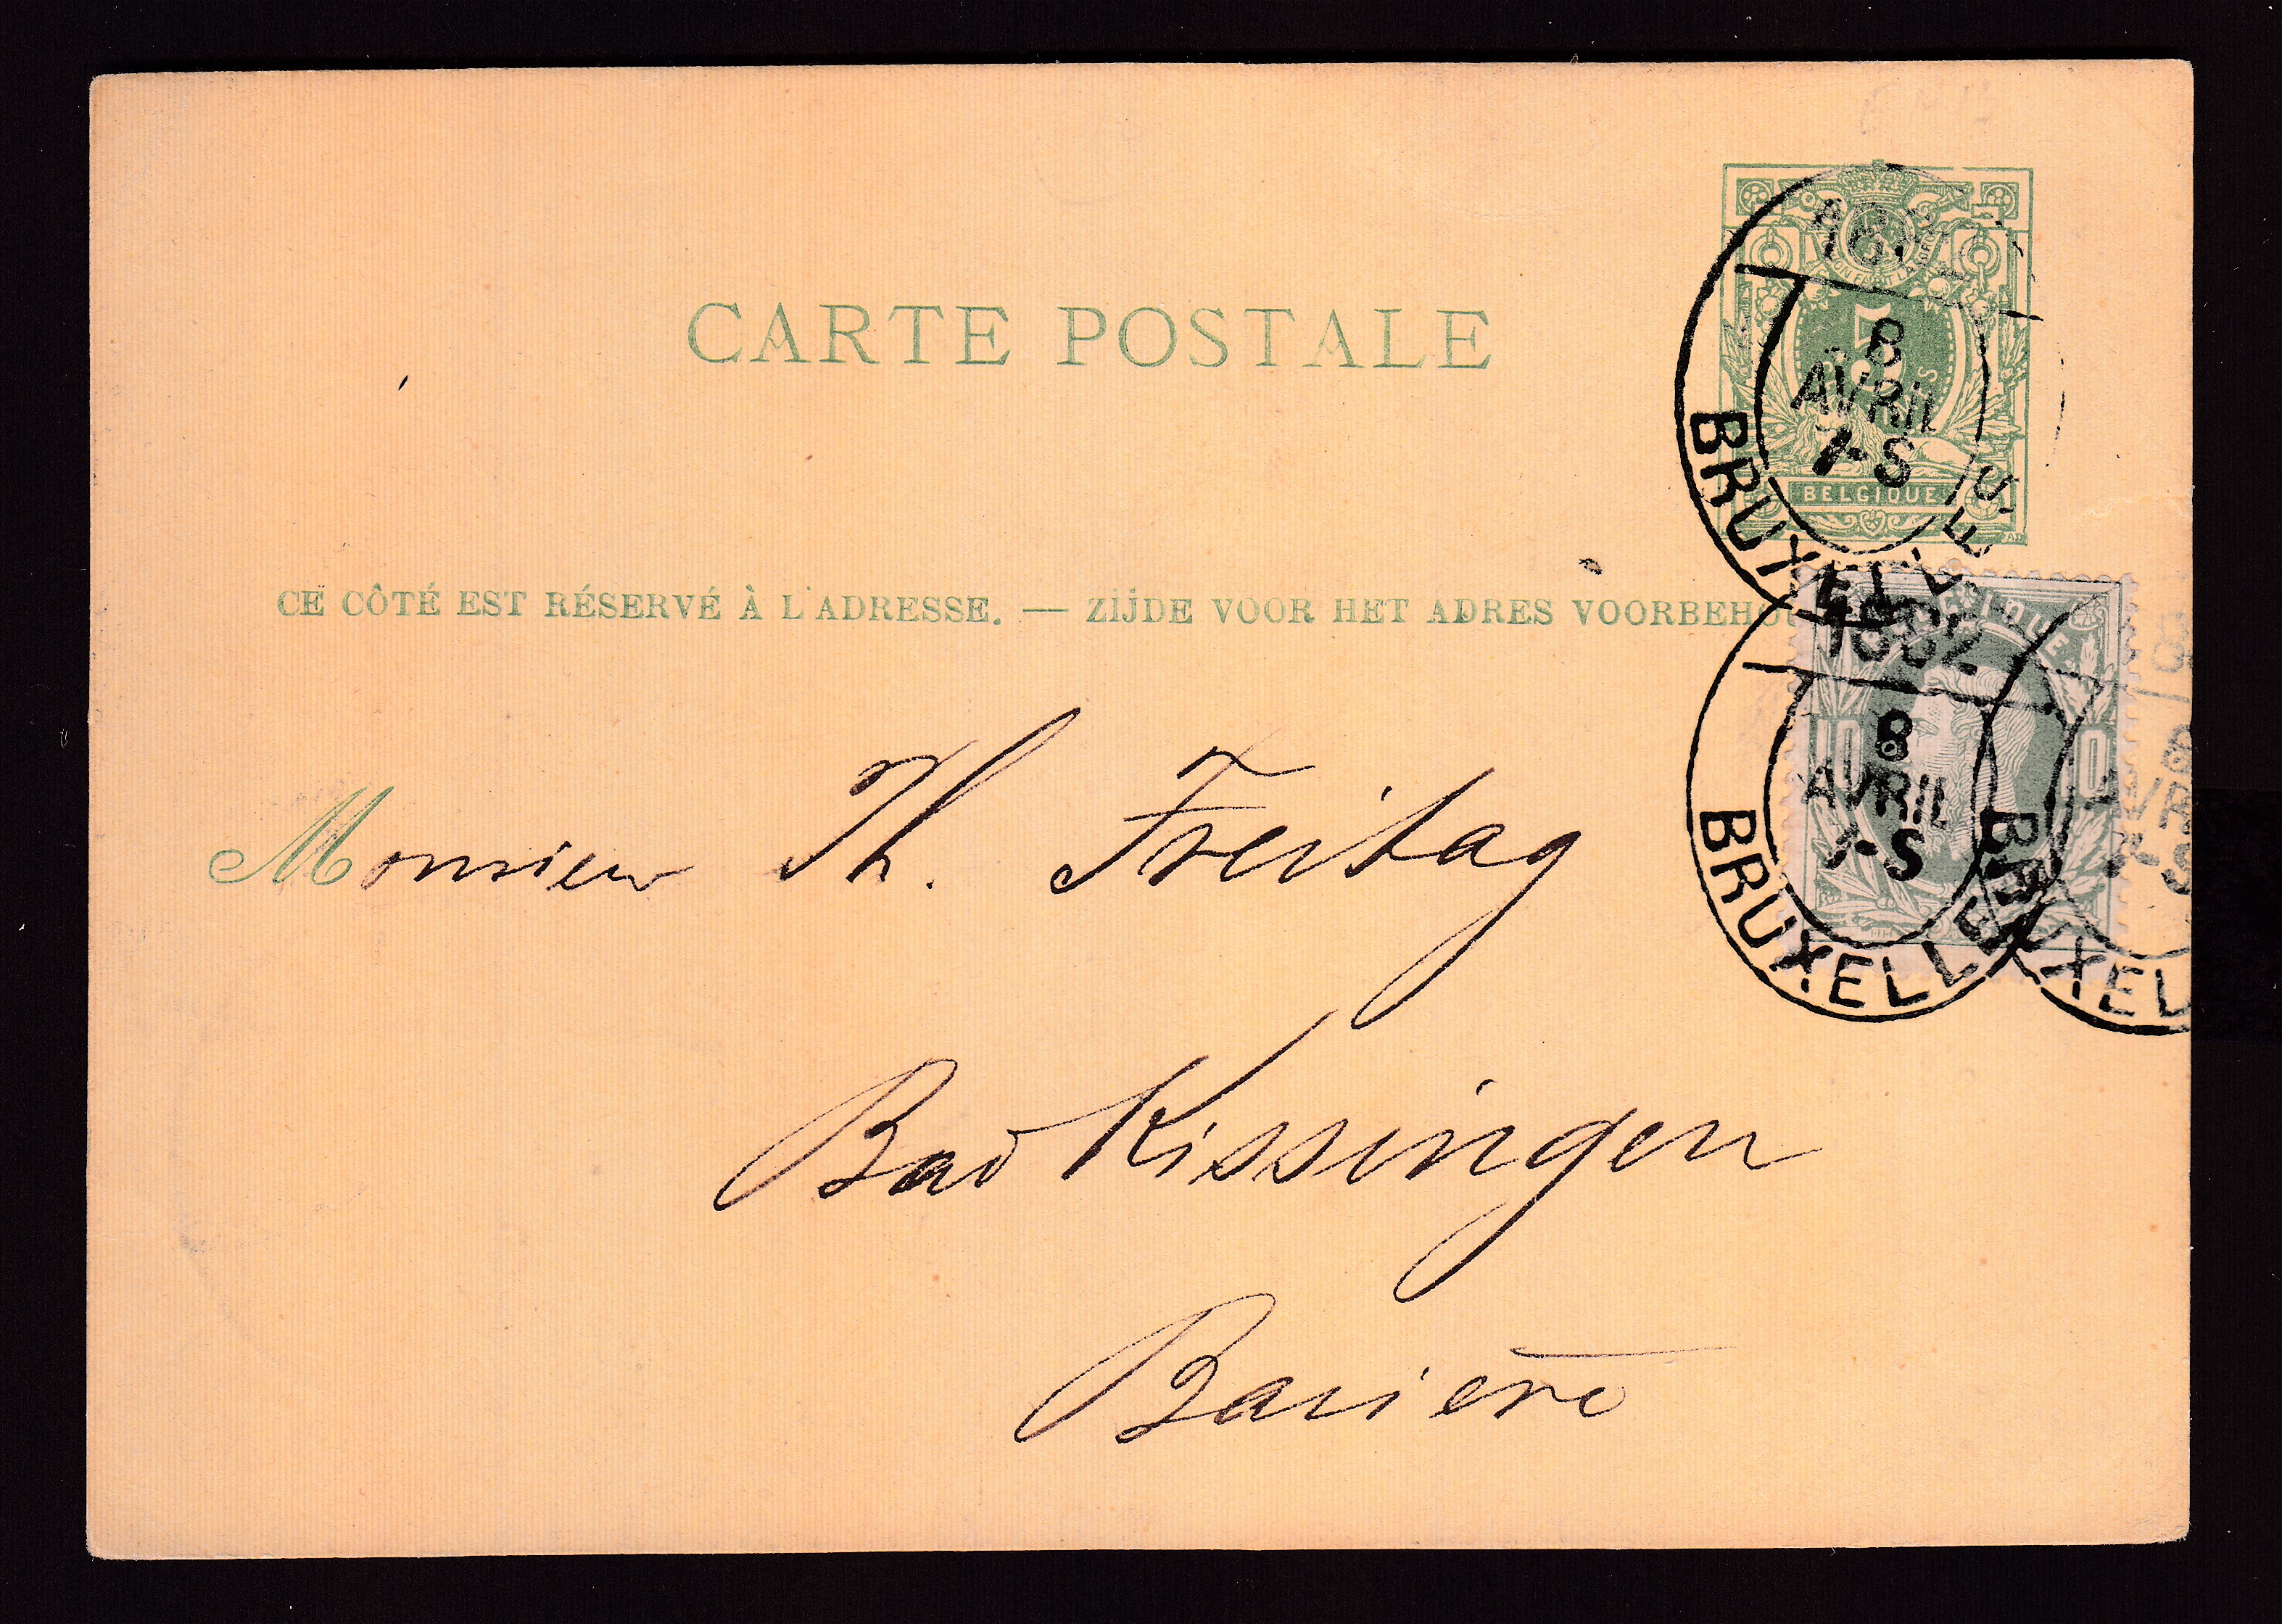 CARTE POSTALE
1882
8
AVRIL
7-S
BRUXELLES
5
BELGIQUE
CE CÔTÉ EST RÉSERVÉ À L'ADRESSE. — ZIJDE VOOR HET ADRES VOORBEHOU
1882
8
AVRIL
7-S
BRUXELLE
10
10
8
AVR
7-S
BRUXEL
Monsieur Th. Freitag
Bad Kissingen
Bavière